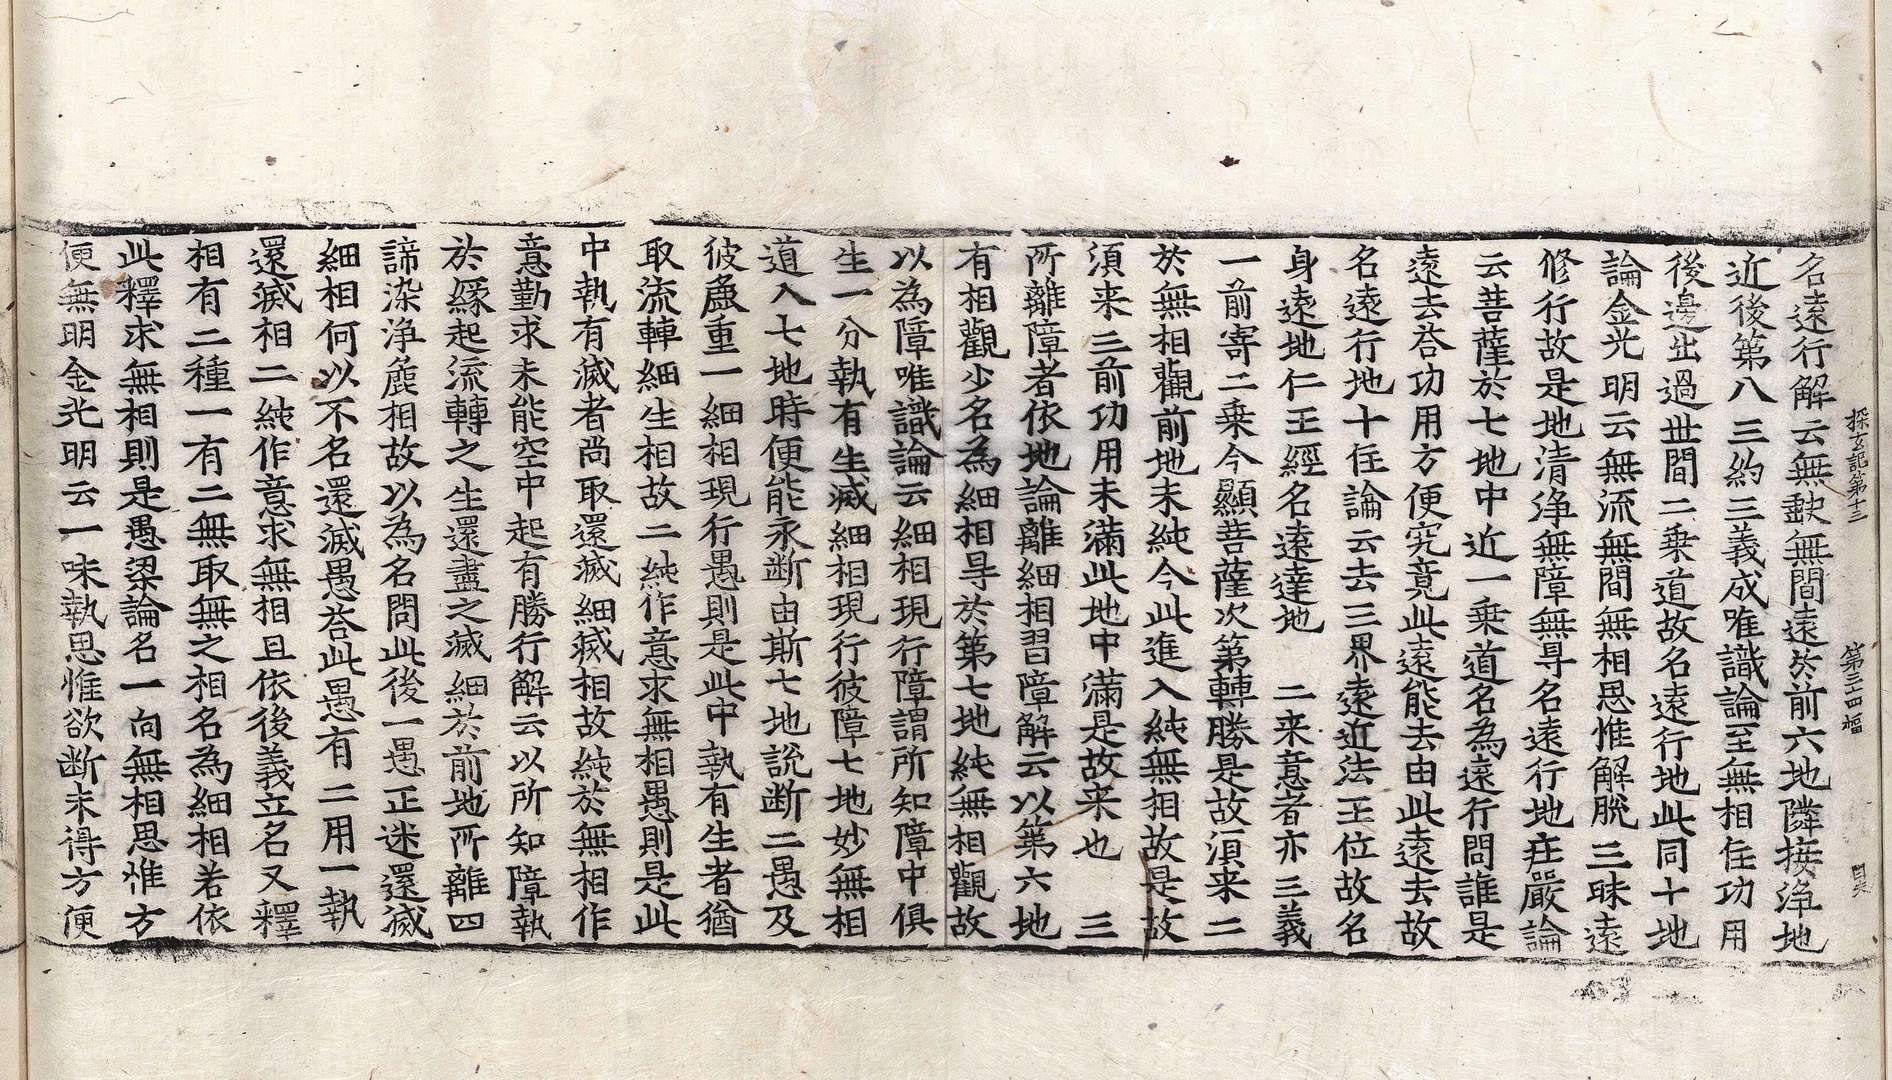 探玄記第十三　第三十四幅
名遠行解云無𡙇無間遠於前六地隣接淨地
近後第八　三約三義成唯識論至無相住功用
後邊出過世間二乗道故名遠行地此同十地
論金光明云無流無間無相思惟解脫三昧遠
修行故是地清淨無障無㝵名遠行地荘嚴論
云菩薩於七地中近一乗道名為遠行問誰是
遠去荅功用方便究竟此遠能去由此遠去故
名遠行地十住論云去三界遠近法王位故名
身遠地仁王經名遠達地　二来意者亦三義
一前寄二乗今顯菩薩次第轉勝是故湏来二
於無相觀前地未純今此進入純無相故是故
湏来三前功用未滿此地中滿是故来也　三
所離障者依地論離細相習障解云以第六地
有相觀少名為細相㝵於第七地純無相觀故
以為障唯識論云細相現行障謂所知障中俱
生一分執有生滅細相現行彼障七地妙無相
道入七地時便能永断由斯七地說断二愚及
彼麁重一細相現行愚則是此中執有生者猶
取流轉細生相故二純作意求無相愚則是此
中執有滅者尚取還滅細滅相故純於無相作
意勤求未能空中起有勝行解云以所知障執
於緣起流轉之生還盡之滅細於前地所離四
諦染淨麁相故以為名問此後一愚正迷還滅
細相何以不名還滅愚荅此愚有二用一執
還滅相二純作意求無相且依後義立名又釋
相有二種一有二無取無之相名為細相若依
此釋求無相則是愚梁論名一向無相思惟方
便無明金光明云一味執思惟欲断未得方便